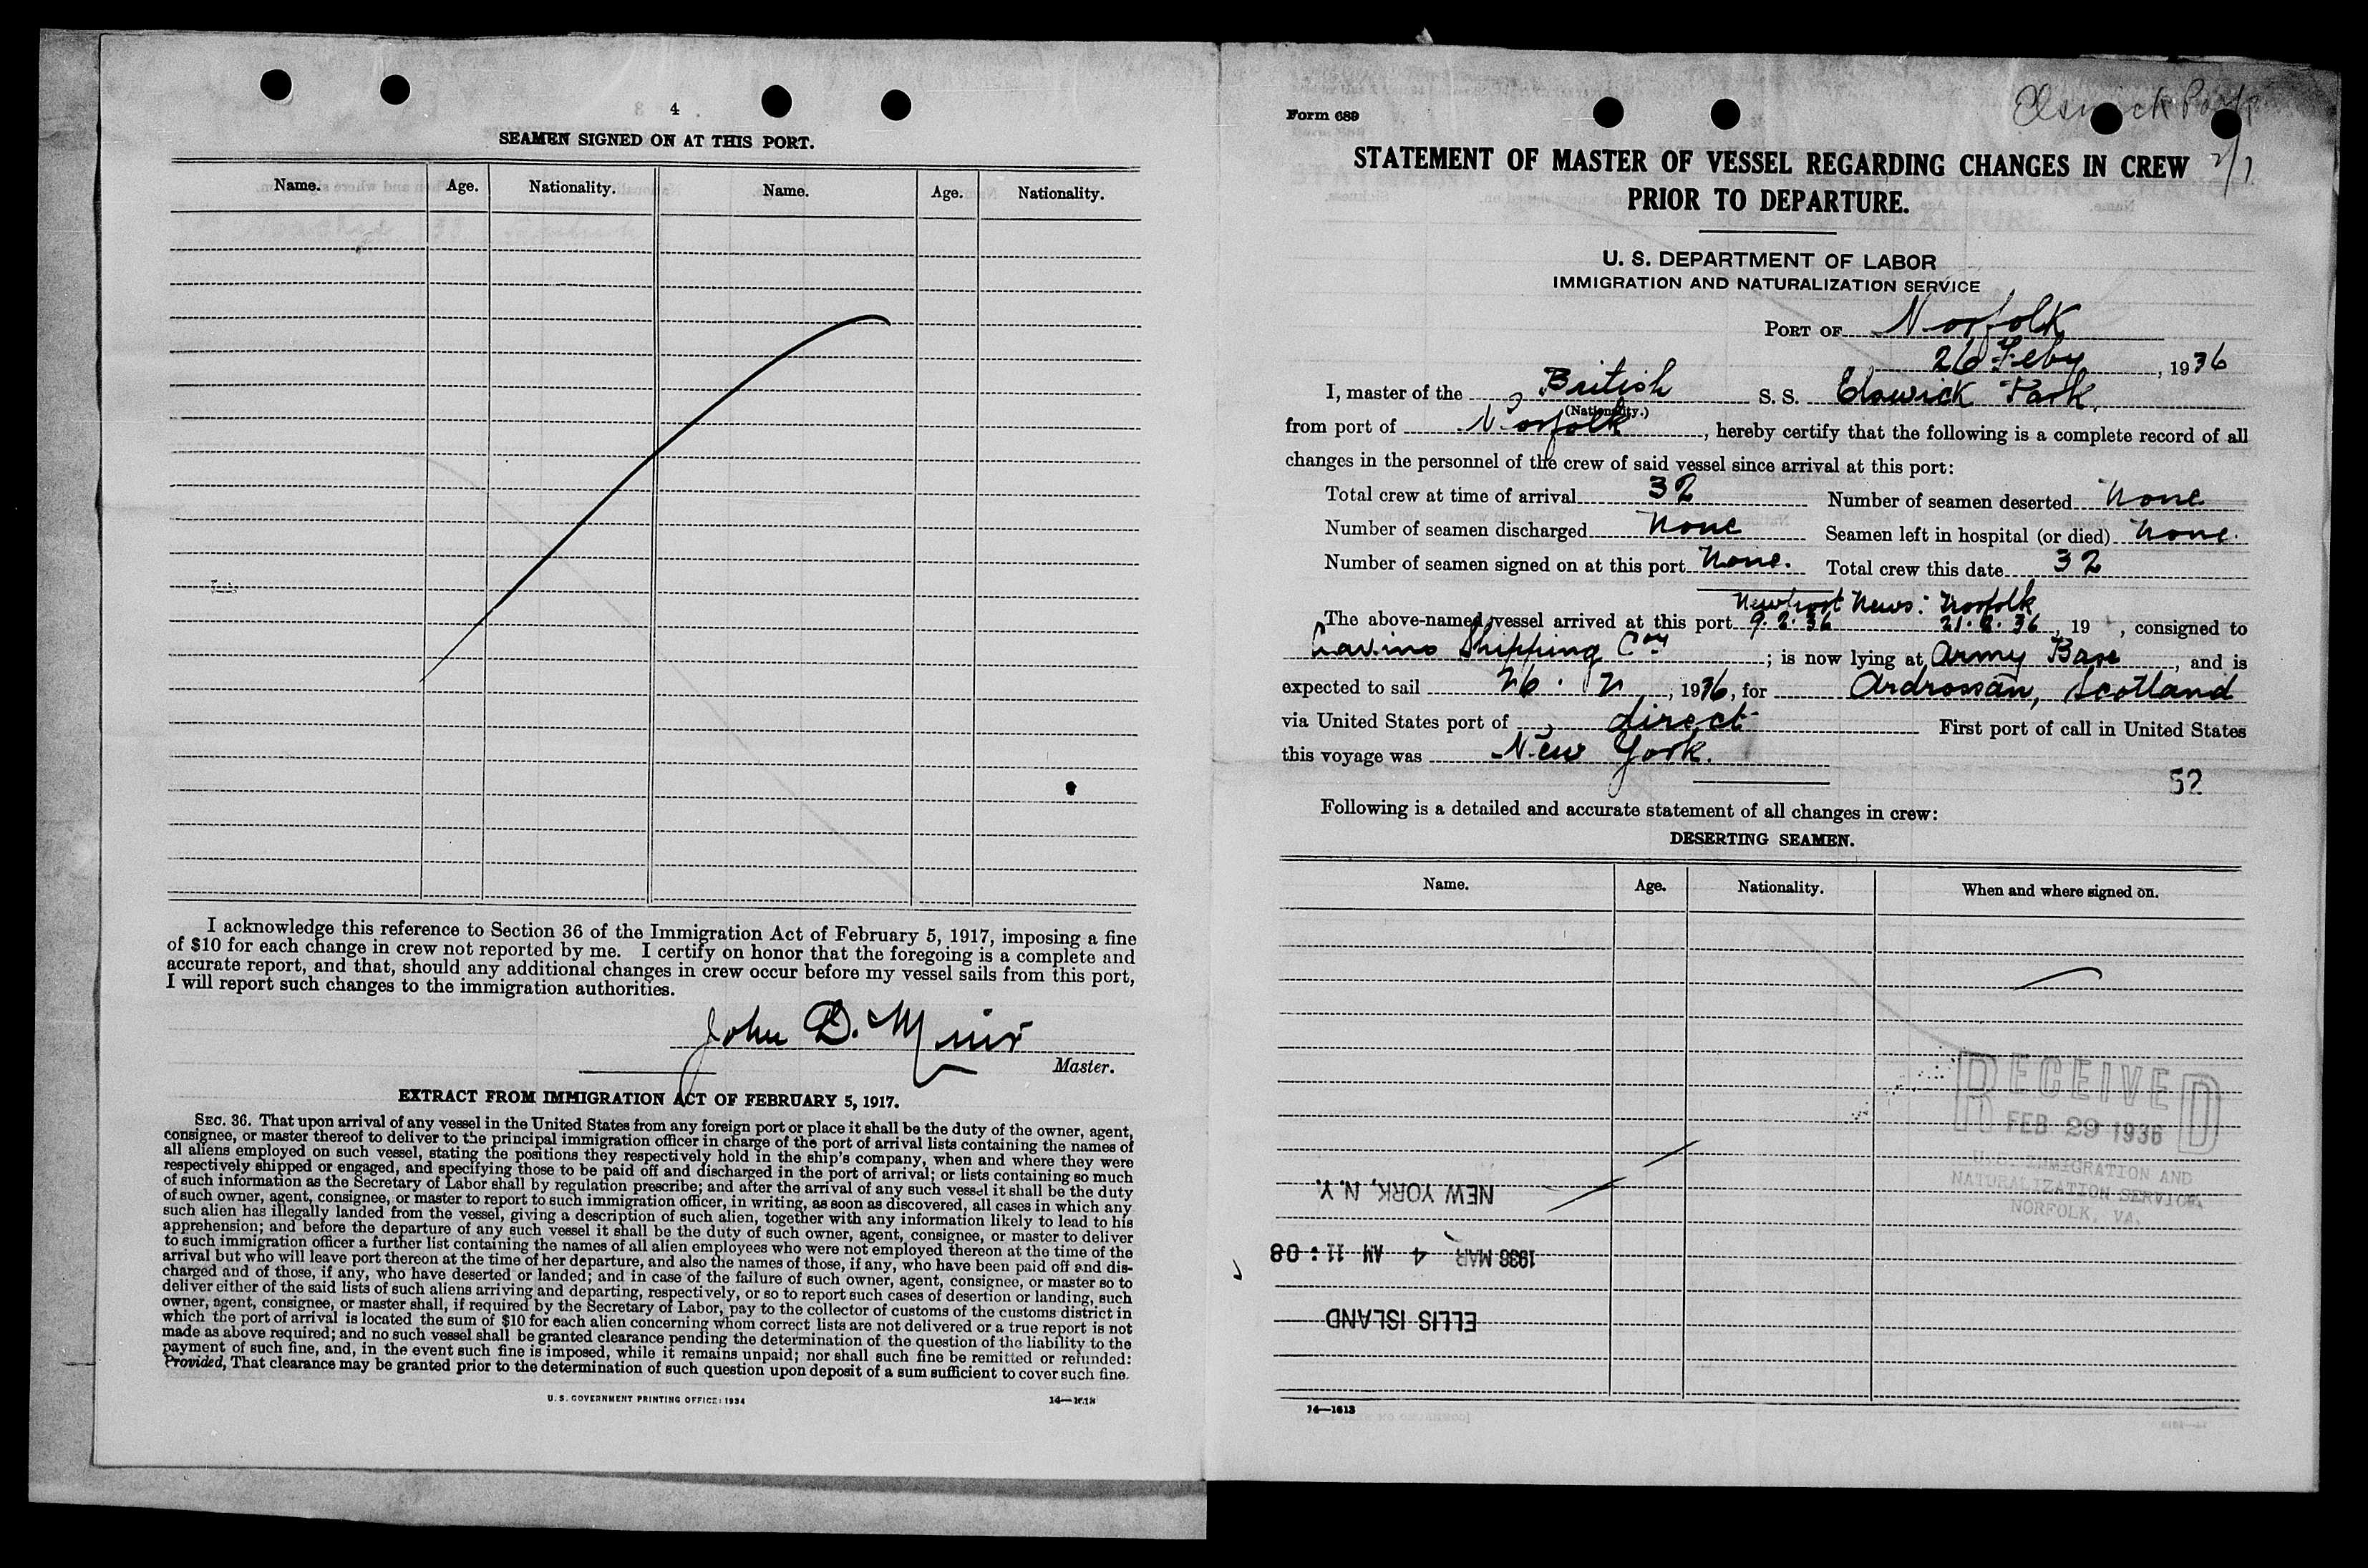 4
SEAMEN SIGNED ON AT THIS PORT.
Name. Age. Nationality. Name. Age. Nationality.
I acknowledge this reference to Section 36 of the Immigration Act of February 5, 1917, imposing a fine
of $10 for each change in crew not reported by me. I certify on honor that the foregoing is a complete and
accurate report, and that, should any additional changes in crew occur before my vessel sails from this port,
I will report such changes to the immigration authorities.
John D. Muir
Master.
EXTRACT FROM IMMIGRATION ACT OF FEBRUARY 5, 1917.
SEC. 36. That upon arrival of any vessel in the United States from any foreign port or place it shall be the duty of the owner, agent,
consignee, or master thereof to deliver to the principal immigration officer in charge of the port of arrival lists containing the names of
all aliens employed on such vessel, stating the positions they respectively hold in the ship's company, when and where they were
respectively shipped or engaged, and specifying those to be paid off and discharged in the port of arrival; or lists containing so much
of such information as the Secretary of Labor shall by regulation prescribe; and after the arrival of any such vessel it shall be the duty
of such owner, agent, consignee, or master to report to such immigration officer, in writing, as soon as discovered, all cases in which any
such alien has illegally landed from the vessel, giving a description of such alien, together with any information likely to lead to his
apprehension; and before the departure of any such vessel it shall be the duty of such owner, agent, consignee, or master to deliver
to such immigration officer a further list containing the names of all alien employees who were not employed thereon at the time of the
arrival but who will leave port thereon at the time of her departure, and also the names of those, if any, who have been paid off and dis-
charged and of those, if any, who have deserted or landed; and in case of the failure of such owner, agent, consignee, or master so to
deliver either of the said lists of such aliens arriving and departing, respectively, or so to report such cases of desertion or landing, such
owner, agent, consignee, or master shall, if required by the Secretary of Labor, pay to the collector of customs of the customs district in
which the port of arrival is located the sum of $10 for each alien concerning whom correct lists are not delivered or a true report is not
made as above required; and no such vessel shall be granted clearance pending the determination of the question of the liability to the
payment of such fine, and, in the event such fine is imposed, while it remains unpaid; nor shall such fine be remitted or refunded:
Provided, That clearance may be granted prior to the determination of such question upon deposit of a sum sufficient to cover such fine.
U. S. GOVERNMENT PRINTING OFFICE: 1934 14—1613
Form 689
Elswick Park
2/1
STATEMENT OF MASTER OF VESSEL REGARDING CHANGES IN CREW
PRIOR TO DEPARTURE.
U. S. DEPARTMENT OF LABOR
IMMIGRATION AND NATURALIZATION SERVICE
PORT OF Norfolk
26 Feby, 1936
I, master of the British S. S. Elswick Park.
(Nationality.)
from port of Norfolk, hereby certify that the following is a complete record of all
changes in the personnel of the crew of said vessel since arrival at this port:
Total crew at time of arrival 32 Number of seamen deserted None
Number of seamen discharged None Seamen left in hospital (or died) None.
Number of seamen signed on at this port None. Total crew this date 32
Newport News: Norfolk
The above-named vessel arrived at this port 9.2.36 21.2.36, 19 , consigned to
Gavino Shipping Coy; is now lying at Army Base, and is
expected to sail 26. 2, 1936, for Ardrossan, Scotland
via United States port of direct First port of call in United States
this voyage was New York.
52
Following is a detailed and accurate statement of all changes in crew:
DESERTING SEAMEN.
Name. Age. Nationality. When and where signed on.
RECEIVED
FEB 29 1936
U.S. IMMIGRATION AND
NATURALIZATION SERVICE
NORFOLK, VA.
ELLIS ISLAND
1936 MAR 4 AM 11:08
NEW YORK, N.Y.
14—1613